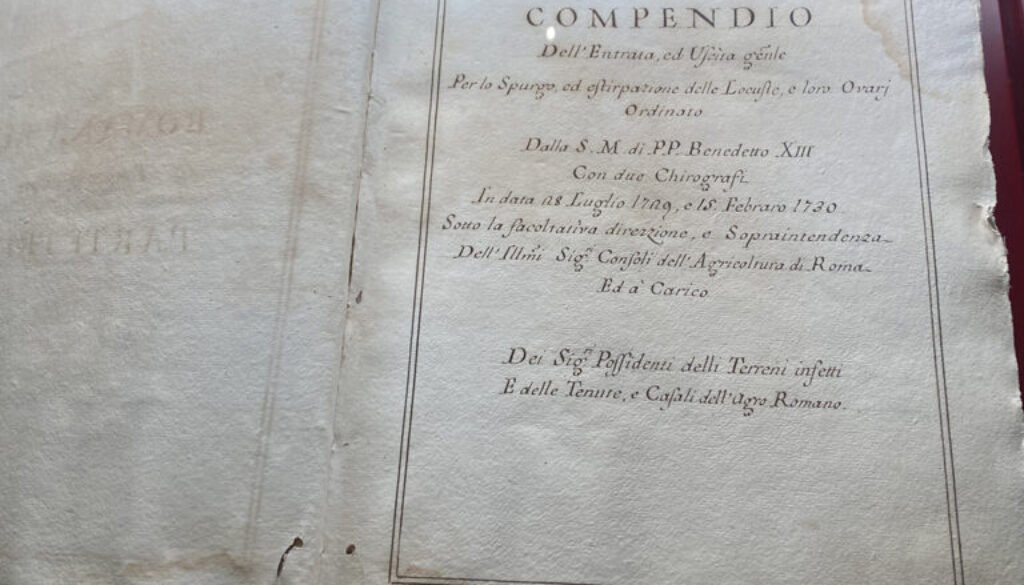 COMPENDIO
Dell'Entrata, ed Uſcita gẽnle
Per lo Spurgo, ed eſtirpazione delle Locuſte, e loro Ovarj
Ordinato
Dalla S. M. di P.P. Benedetto XIII
Con due Chirografi
In data 28 Luglio 1729, e 15 Febraro 1730
Sotto la facoltativa direzzione, e Sopraintendenza
Dell'Illmi Sigri Conſoli dell'Agricoltura di Roma
Ed à Carico
Dei Sigri Poſſidenti delli Terreni infetti
E delle Tenute, e Caſali dell'Agro Romano.